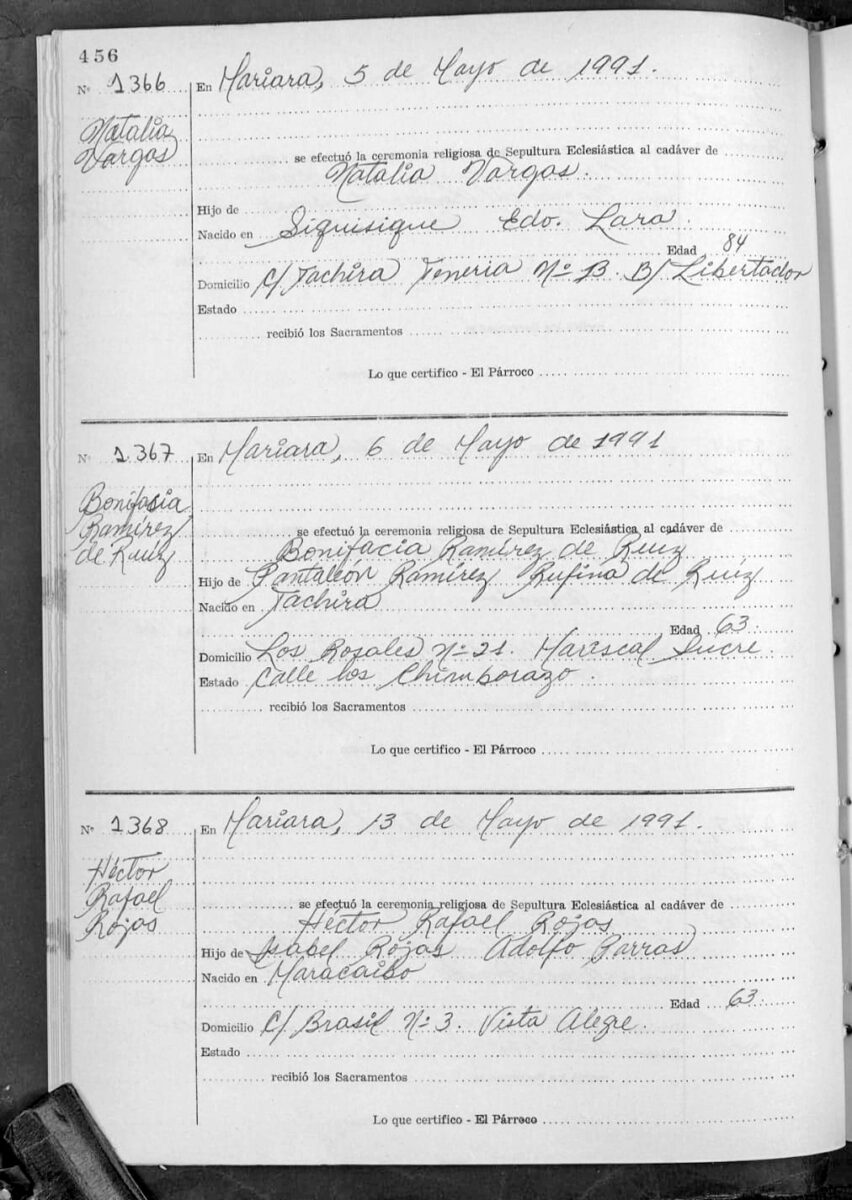 456
Nº 1366 En Mariara, 5 de Mayo de 1991.
Natalia
Vargas
se efectuó la ceremonia religiosa de Sepultura Eclesiástica al cadáver de
Natalia Vargas.
Hijo de
Nacido en Siquisique Edo. Lara
Edad 84
Domicilio C/ Tachira Teneria Nº 13. B/ Libertador
Estado
recibió los Sacramentos
Lo que certifico - El Párroco
Nº 1367 En Mariara, 6 de Mayo de 1991
Bonifacia
Ramírez
de Ruiz
se efectuó la ceremonia religiosa de Sepultura Eclesiástica al cadáver de
Bonifacia Ramírez de Ruiz
Hijo de Pantaleón Ramírez Rufina de Ruiz
Nacido en Tachira
Edad 63.
Domicilio Los Rosales Nº 21. Mariscal Sucre.
Estado Calle los Chimborazo.
recibió los Sacramentos
Lo que certifico - El Párroco
Nº 1368 En Mariara, 13 de Mayo de 1991.
Héctor
Rafael
Rojas
se efectuó la ceremonia religiosa de Sepultura Eclesiástica al cadáver de
Héctor Rafael Rojas
Hijo de Isabel Rojas Adolfo Parras
Nacido en Maracaibo
Edad 63.
Domicilio C/ Brasil Nº 3. Vista Alegre.
Estado
recibió los Sacramentos
Lo que certifico - El Párroco